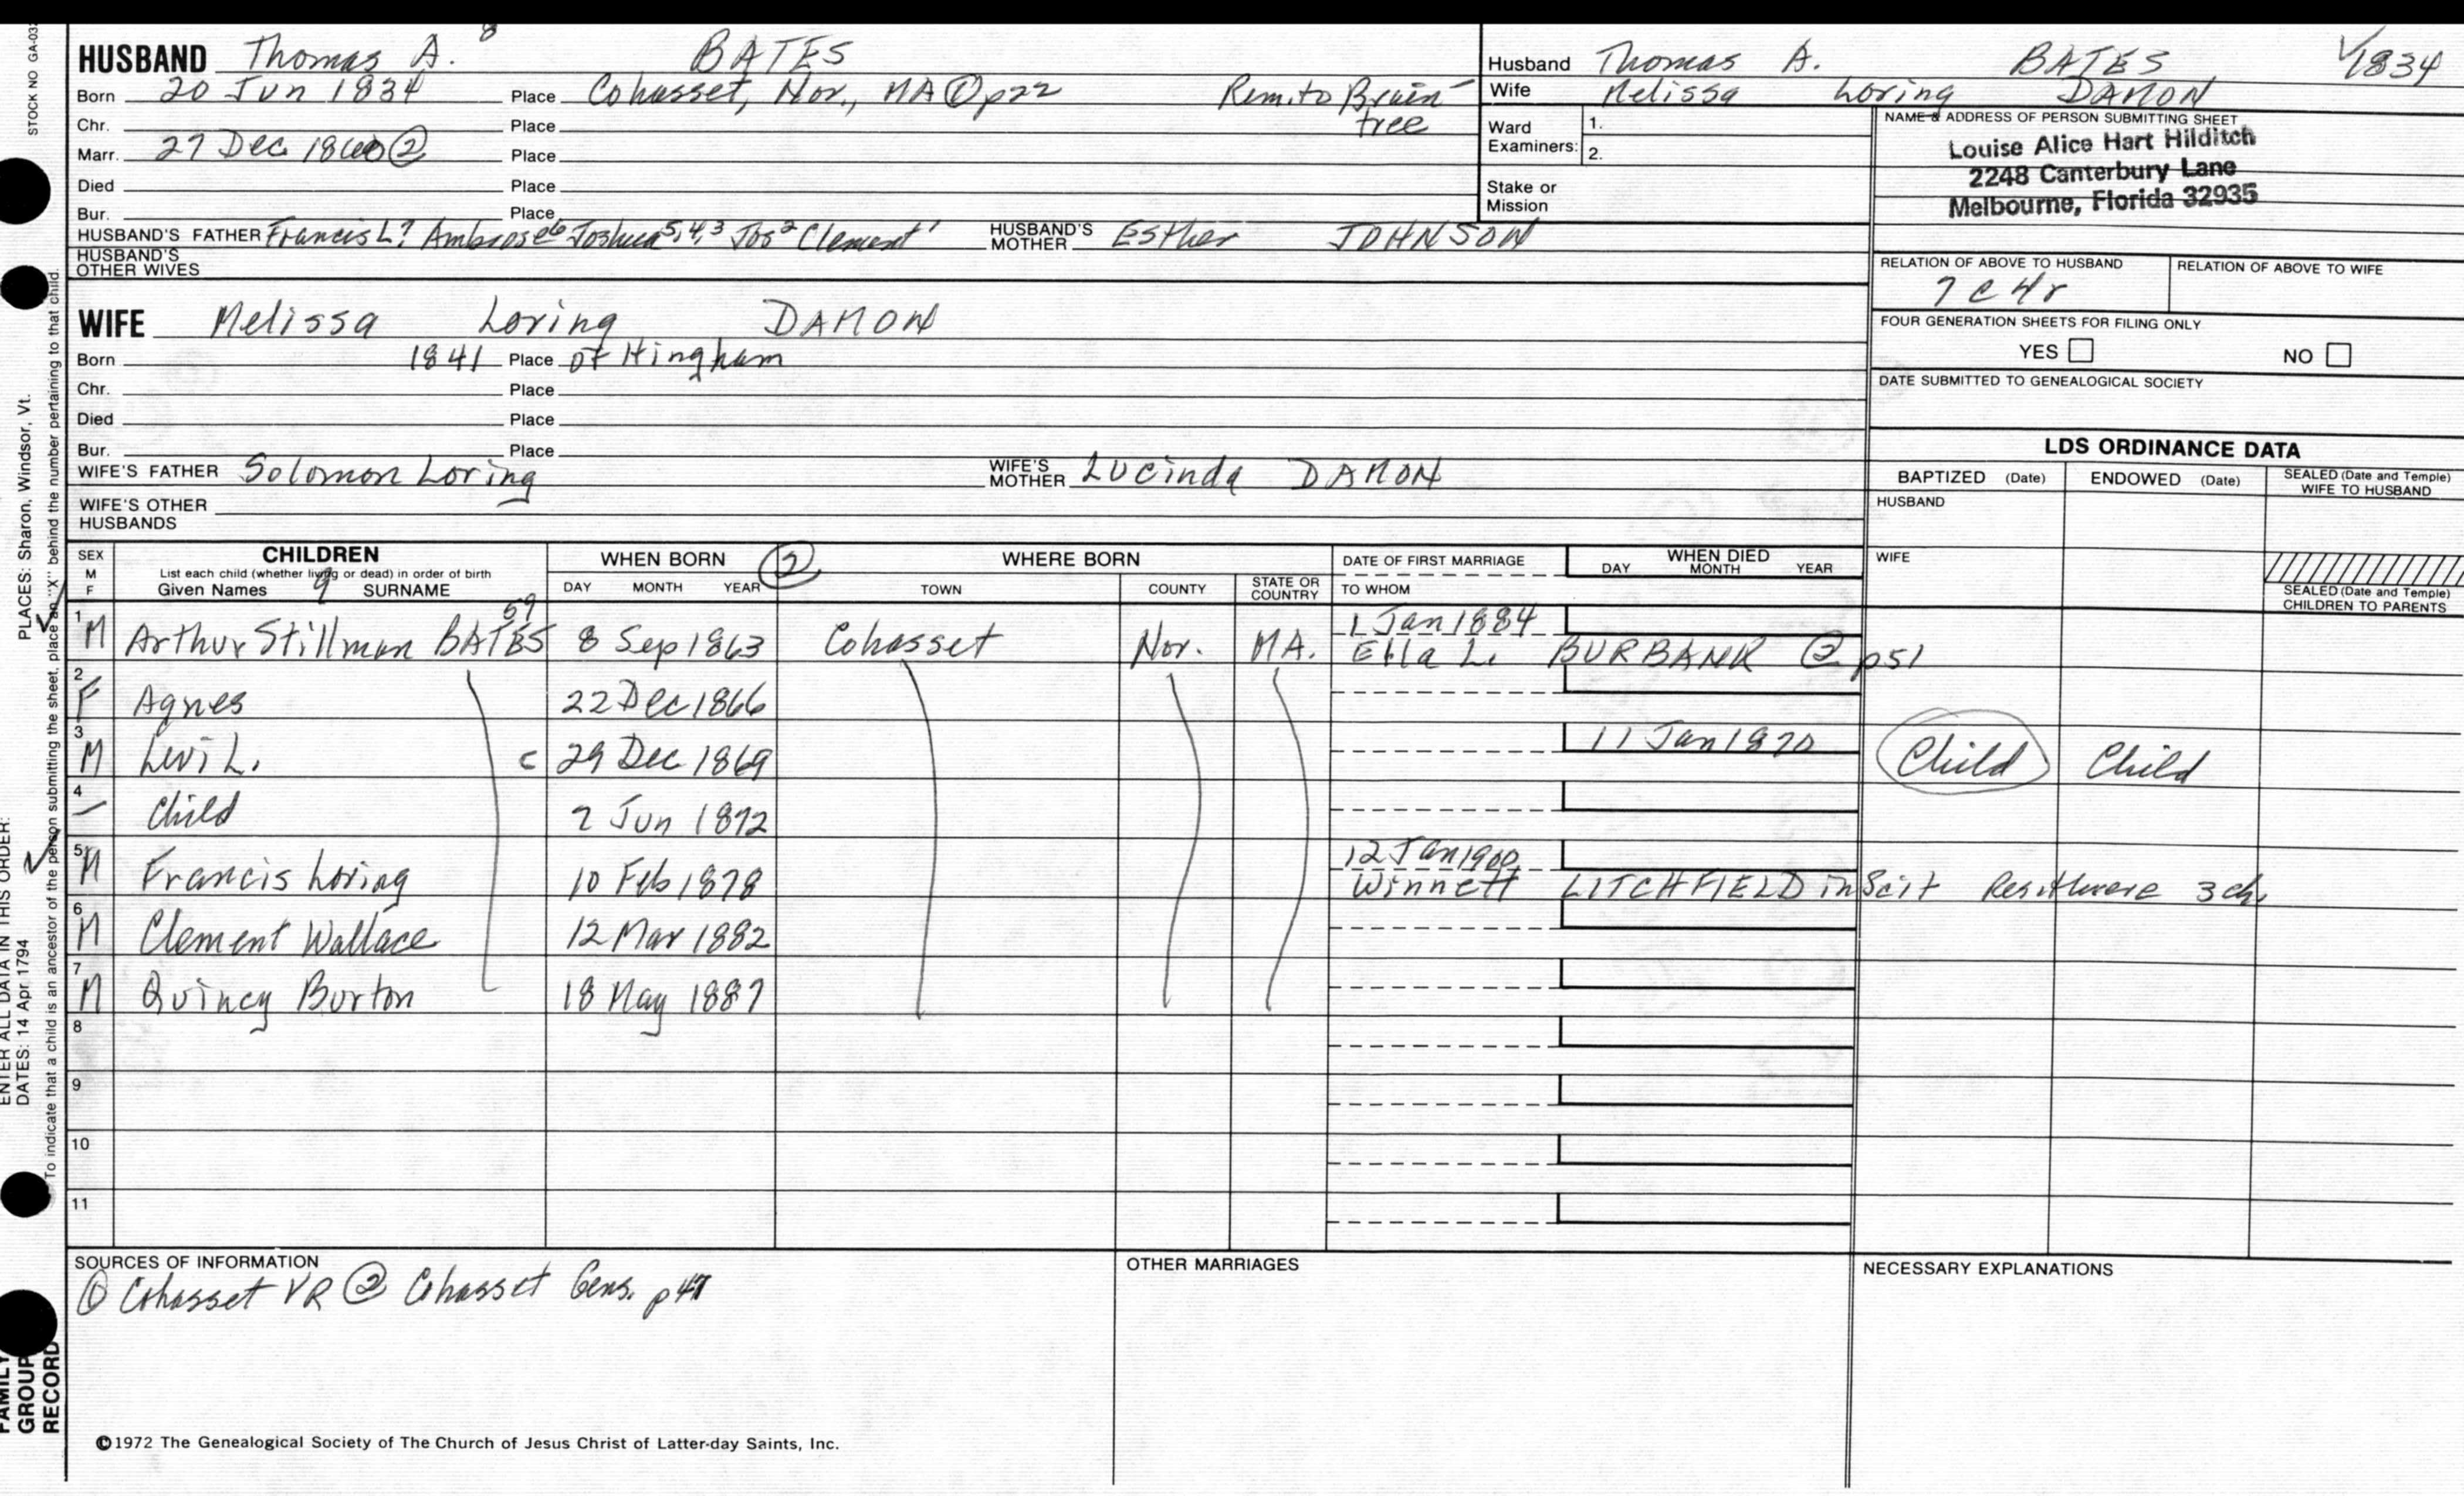 STOCK NO GA-03
HUSBAND Thomas A. 8 BATES
Born 20 Jun 1834 Place Cohasset, Nor., MA ① p22 Rem. to Brain-
tree
Chr. Place
Marr. 27 Dec Place
Died Place
Bur. Place
HUSBAND'S FATHER Francis L7 Ambrose6 Joshua5,4,3 Jos2 Clement1 HUSBAND'S MOTHER Esther JOHNSON
HUSBAND'S
OTHER WIVES
Husband Thomas A. BATES 1834
Wife Melissa Loring DAMON
Ward
Examiners: 1.
2.
Stake or
Mission
NAME & ADDRESS OF PERSON SUBMITTING SHEET
Louise Alice Hart Hilditch
2248 Canterbury Lane
Melbourne, Florida 32935
RELATION OF ABOVE TO HUSBAND RELATION OF ABOVE TO WIFE
7c4r
FOUR GENERATION SHEETS FOR FILING ONLY
YES NO
DATE SUBMITTED TO GENEALOGICAL SOCIETY
WIFE Melissa Loring DAMON
Born 1841 Place of Hingham
Chr. Place
Died Place
Bur. Place
WIFE'S FATHER Solomon Loring WIFE'S MOTHER Lucinda DAMON
WIFE'S OTHER
HUSBANDS
LDS ORDINANCE DATA
BAPTIZED (Date) ENDOWED (Date) SEALED (Date and Temple)
WIFE TO HUSBAND
HUSBAND
WIFE
SEALED (Date and Temple)
CHILDREN TO PARENTS
SEX
M
F
CHILDREN
List each child (whether living or dead) in order of birth
Given Names 9 SURNAME
WHEN BORN ②
DAY MONTH YEAR
WHERE BORN
TOWN COUNTY STATE OR COUNTRY
DATE OF FIRST MARRIAGE
TO WHOM
WHEN DIED
DAY MONTH YEAR
1 Jan 1884
1 M Arthur Stillman BATES 59 8 Sep 1863 Cohasset Nor. MA. Ella L. BURBANK ② p51
2 F Agnes 22 Dec 1866
3 M Levi L. c 29 Dec 1869 11 Jan 1870 Child Child
4 — Child 2 Jun 1872
12 Jan 1900
5 M Francis Loring 10 Feb 1878 Winnett LITCHFIELD in Scit Res. there 3 ch.
6 M Clement Wallace 12 Mar 1882
7 M Quincy Burton 18 May 1887
8
9
10
11
SOURCES OF INFORMATION
① Cohasset VR ② Cohasset Gens. p47
OTHER MARRIAGES
NECESSARY EXPLANATIONS
©1972 The Genealogical Society of The Church of Jesus Christ of Latter-day Saints, Inc.
ENTER ALL DATA IN THIS ORDER:
DATES: 14 Apr 1794 PLACES: Sharon, Windsor, Vt.
To indicate that a child is an ancestor of the person submitting the sheet, place an "X" behind the number pertaining to that child.
FAMILY
GROUP
RECORD